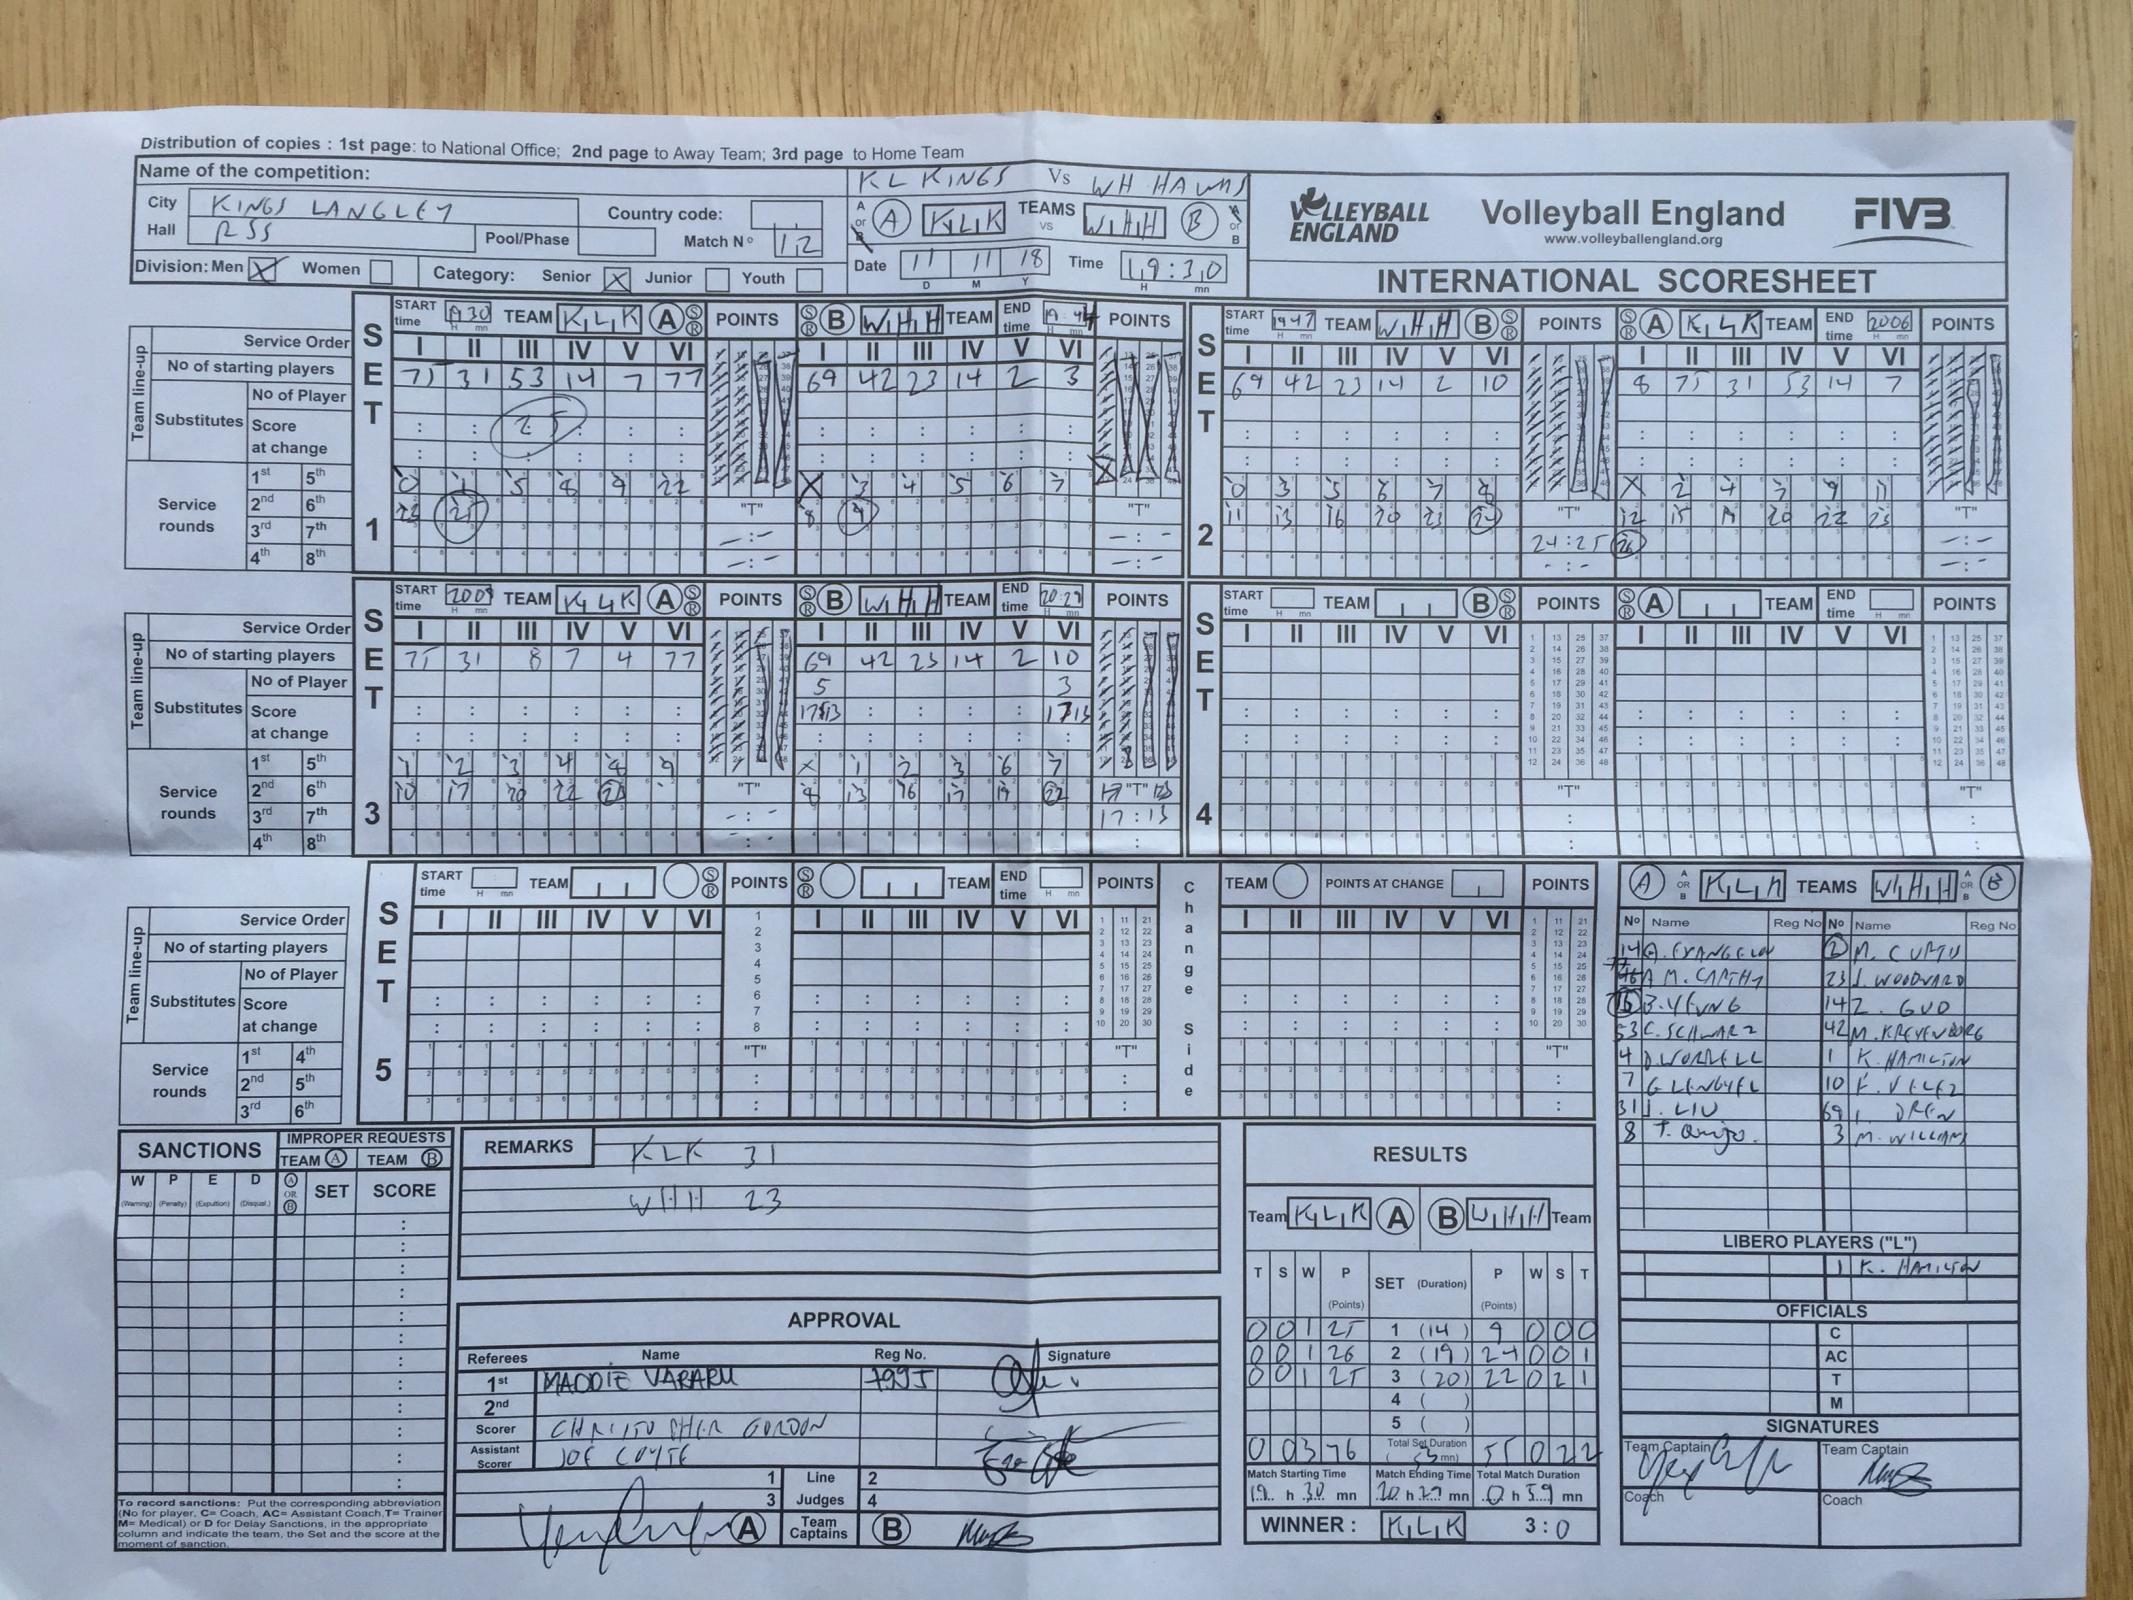 Distribution of copies : 1st page: to National Office; 2nd page to Away Team; 3rd page to Home Team
Name of the competition:
KL KINGS Vs WH HAWKS
City KINGS LANGLEY Country code:
Hall RSS Pool/Phase Match Nº 12
A or B A KLK TEAMS vs WHH B A or B
Division: Men X Women Category: Senior X Junior Youth
Date 11 11 18 Time 19:30
D M Y H mn
VOLLEYBALL ENGLAND
Volleyball England
www.volleyballengland.org
FIVB
INTERNATIONAL SCORESHEET
Team line-up
Service Order
No of starting players
Substitutes
No of Player
Score at change
Service rounds
1st 5th
2nd 6th
3rd 7th
4th 8th
SET 1
START time 1930 TEAM KLK A S R POINTS S R B WHH TEAM END time 19:44 POINTS
I II III IV V VI I II III IV V VI
75 31 53 14 7 77 69 42 23 14 2 3
25
0 1 5 8 9 22 X 3 4 5 6 7
23 25 "T" 8 9 "T"
SET 2
START time 1947 TEAM WHH B S R POINTS S R A KLK TEAM END time 2006 POINTS
I II III IV V VI I II III IV V VI
69 42 23 14 2 10 8 75 31 53 14 7
0 3 5 6 7 8 X 2 4 7 9 11
11 13 16 20 23 24 "T" 12 15 19 20 22 23 "T"
24:25 26
Team line-up
Service Order
No of starting players
Substitutes
No of Player
Score at change
Service rounds
1st 5th
2nd 6th
3rd 7th
4th 8th
SET 3
START time 2009 TEAM KLK A S R POINTS S R B WHH TEAM END time 20:29 POINTS
I II III IV V VI I II III IV V VI
75 31 8 7 4 77 69 42 23 14 2 10
5 3
17:13 17:13
1 2 3 4 8 9 X 1 2 3 6 7
10 17 20 22 25 "T" 8 13 16 17 19 22 17 "T" 13
17:13
SET 4
START time TEAM B S R POINTS S R A TEAM END time POINTS
I II III IV V VI I II III IV V VI
"T" "T"
Team line-up
Service Order
No of starting players
Substitutes
No of Player
Score at change
Service rounds
1st 4th
2nd 5th
3rd 6th
SET 5
START time TEAM S R POINTS S R TEAM END time POINTS
I II III IV V VI I II III IV V VI
"T" "T"
Change Side
TEAM POINTS AT CHANGE POINTS
I II III IV V VI
"T"
A A OR B KLK TEAMS WHH A OR B B
Nº Name Reg No Nº Name Reg No
14 A. EVANGELOU 2 M. CURTIS
77 A. M. CARTHY 23 J. WOODWARD
75 B. YEUNG 14 Z. GUO
53 C. SCHWARZ 42 M. KREYENBORG
4 D. WORRELL 1 K. HAMILTON
7 G LENGYEL 10 F. VELEZ
31 J. LIU 69 I. DREN
8 T. 3 M. WILLIAMS
LIBERO PLAYERS ("L")
1 K. HAMILTON
OFFICIALS
C
AC
T
M
SIGNATURES
Team Captain Team Captain
Coach Coach
SANCTIONS
IMPROPER REQUESTS
TEAM A TEAM B
W P E D A OR B SET SCORE
(Warning) (Penalty) (Expultion) (Disqual.)
To record sanctions: Put the corresponding abbreviation
(No for player, C= Coach, AC= Assistant Coach, T= Trainer
M= Medical) or D for Delay Sanctions, in the appropriate
column and indicate the team, the Set and the score at the
moment of sanction.
REMARKS
KLK 31
WHH 23
APPROVAL
Referees Name Reg No. Signature
1st MADDIE VARARU 7995
2nd
Scorer CHRISTOPHER GORDON
Assistant Scorer JOE COYTE
1 Line Judges 2
3 4
A Team Captains B
RESULTS
Team KLK A B WHH Team
T S W P (Points) SET (Duration) P (Points) W S T
0 0 1 25 1 (14) 9 0 0 0
0 0 1 26 2 (19) 24 0 0 1
0 0 1 25 3 (20) 22 0 2 1
4 ( )
5 ( )
0 0 3 76 Total Set Duration (53 mn) 55 0 2 2
Match Starting Time Match Ending Time Total Match Duration
19 h 30 mn 20 h 29 mn 0 h 59 mn
WINNER : KLK 3 : 0